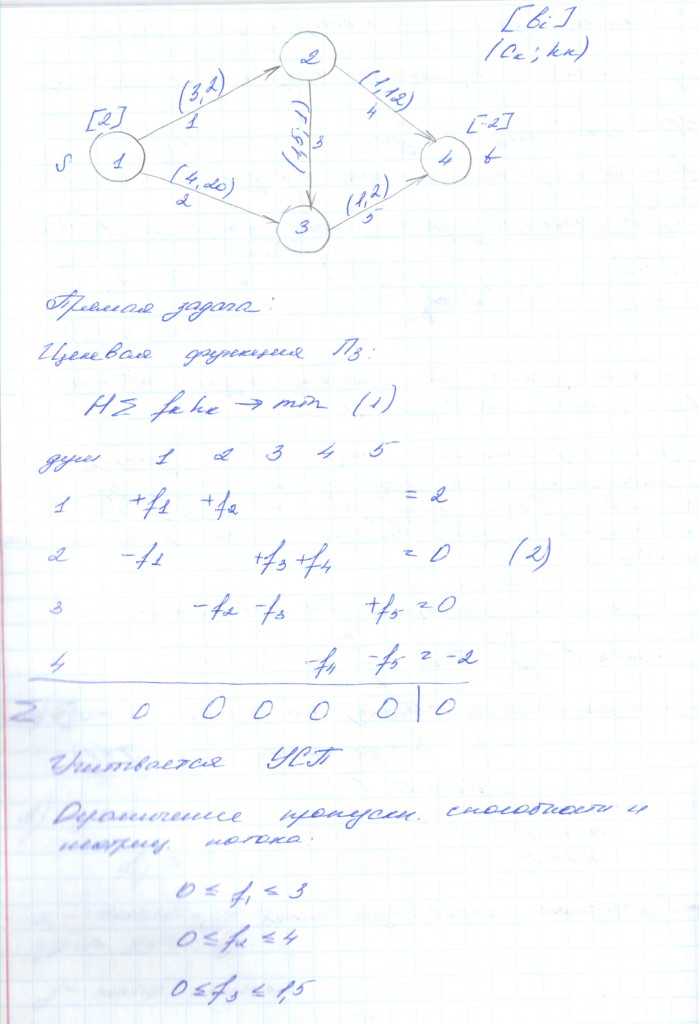 [bi]
(cк; hк)
2
(3,2)
1
(1,12)
4
[2]
S
1
(1,5; 1)
3
[-2]
4
t
(4,20)
2
(1,2)
5
3
Прямая задача:
Целевая функция П3:
H Σ fк hк → min (1)
дуги 1 2 3 4 5
1 +f1 +f2 = 2
2 -f1 +f3 +f4 = 0 (2)
3 -f2 -f3 +f5 = 0
4 -f4 -f5 = -2
Σ 0 0 0 0 0 | 0
Учитывается УСП
Ограничение пропускн. способности и
неотриц. потока:
0 ≤ f1 ≤ 3
0 ≤ f2 ≤ 4
0 ≤ f3 ≤ 1,5